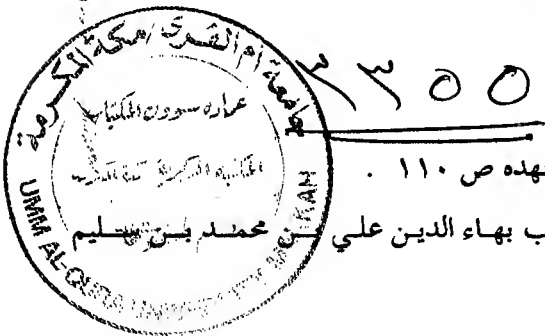 جامعة أم القرى / مكة المكرمة
عمادة شؤون المكتبات
المكتبة المركزية
UMM AL-QURA UNIVERSITY
هده ص ١١٠ .
ب بهاء الدين علي بن محمد بن سليم